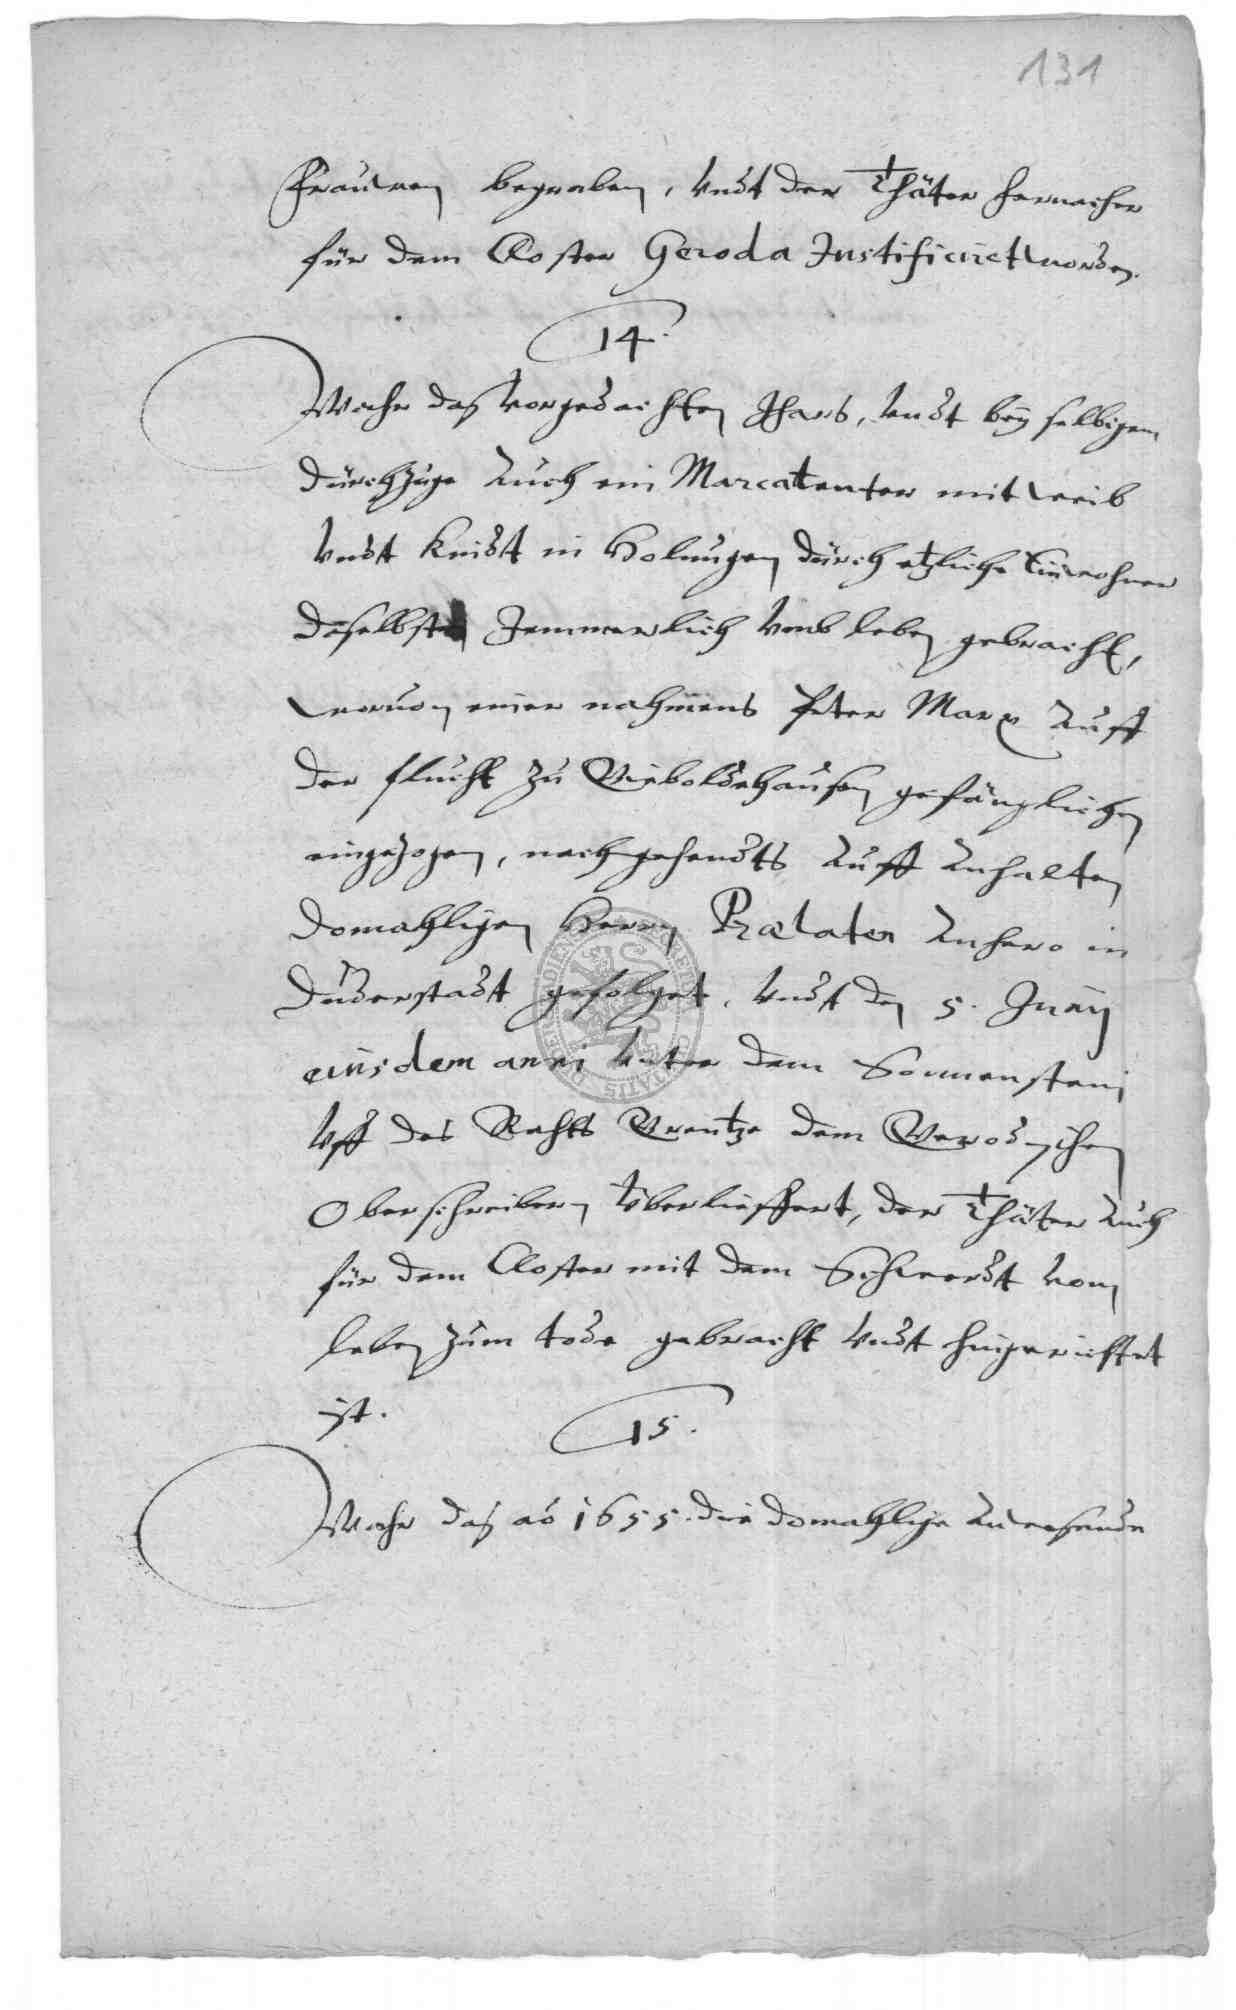 131
Frauwen begraben, undt der Thäter hernacher
für dem Closter Geroda Justificiret worden.
14.
Wahr das vorgedachten Jhars, undt bey selbigem
durchzuge Auch ein Marcatenter mit weib
undt Kindt in Holungen durch etzliche Einwohner
daselbsten Jemmerlich umbs leben gebracht,
worvon einer nahmens Peter Marx Auff
der flucht zu Gieboldehausen gefänglichen
eingezogen, nachgehendts Auff Anhalten
domahligen Herrn Praelaten Anhero in
Duderstadt gefolget, undt den 5. Junij
eiusdem anni unter dem Sonnenstein
uff des Rahts Grentze dem Gerodischen
Oberschreibern überlieffert, der Thäter Auch
für dem Closter mit dem Schwerdt vom
leben zum tode gebracht undt hingerichtet
ist.
15.
Wahr das ao 1655. die domahlige Anwesende